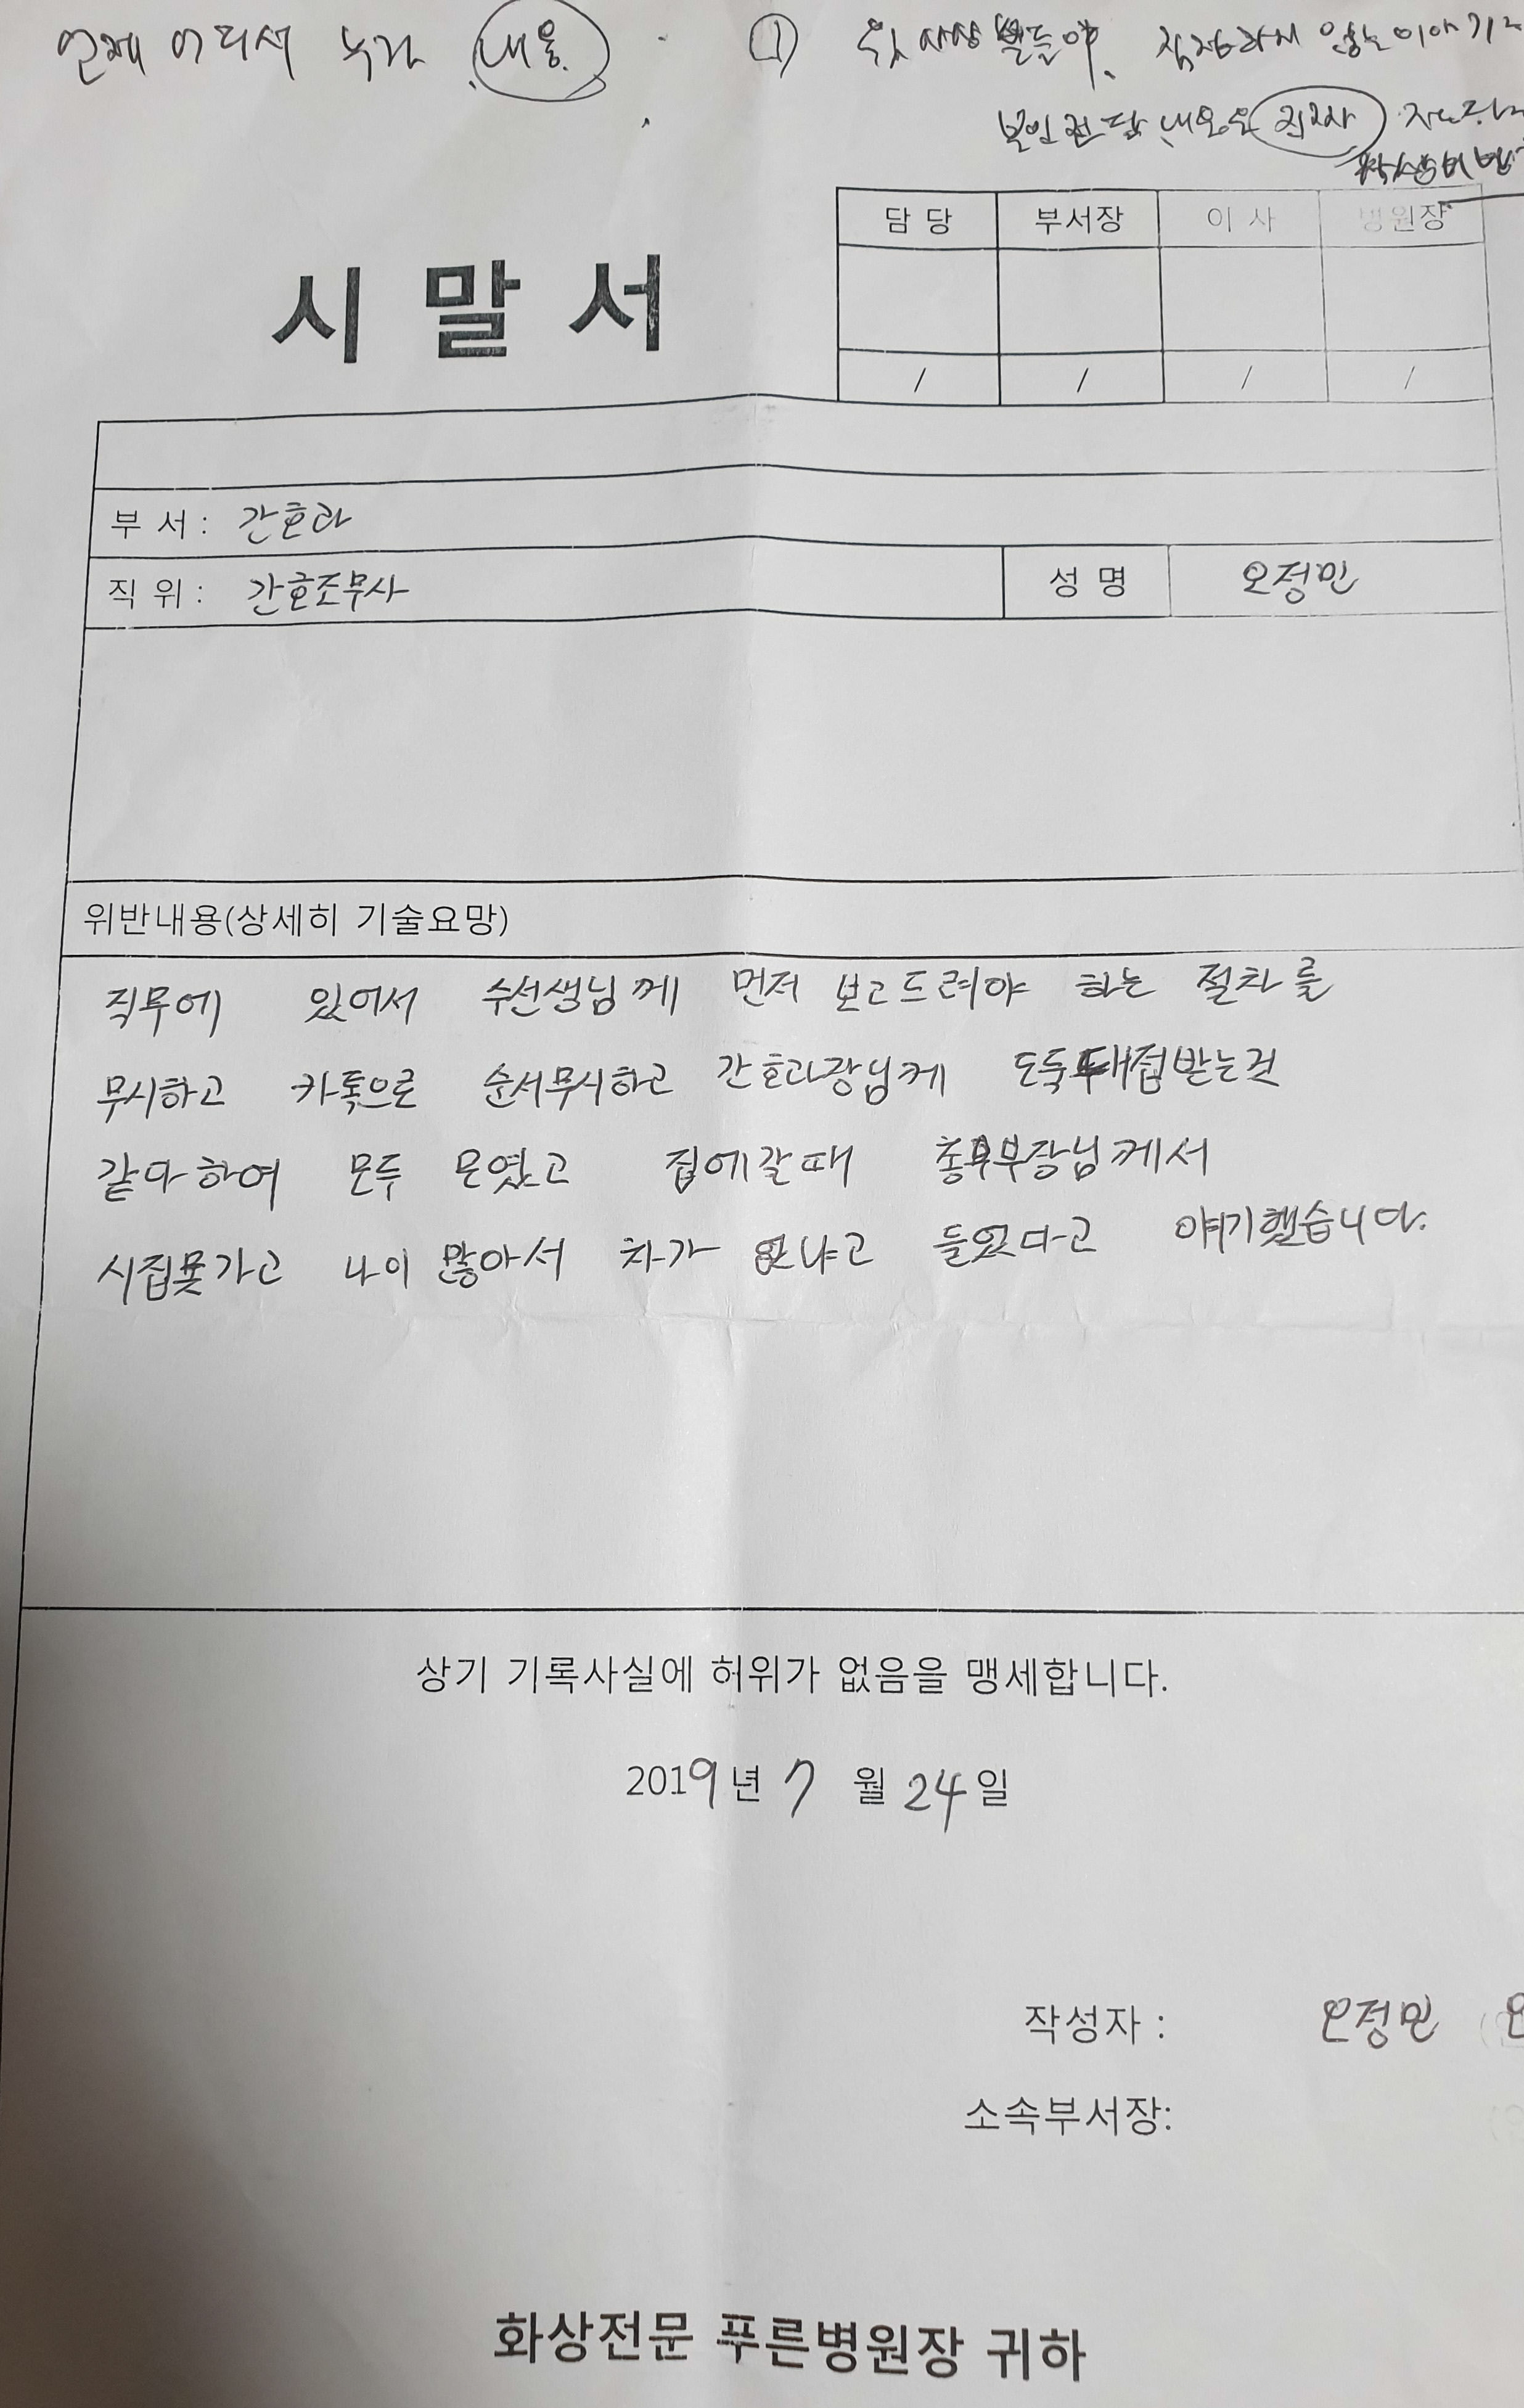 언제 어디서 누가 내용. ① 윗사상 분들이 직접하지 않는 이야기
본인전달 내용은
시 말 서
담 당 부서장 이 사 병원장
/ / / /
부 서 : 간호과
직 위 : 간호조무사 성 명 오정민
위반내용(상세히 기술요망)
직무에 있어서 수선생님께 먼저 보고드려야 하는 절차를
무시하고 카톡으로 순서무시하고 간호과장님께 도둑대접받는것
같다하여 모두 모였고 집에갈때 총무부장님께서
시집못가고 나이 많아서 차가 없냐고 들었다고 얘기했습니다.
상기 기록사실에 허위가 없음을 맹세합니다.
2019년 7 월 24일
작성자 : 오정민
소속부서장:
화상전문 푸른병원장 귀하